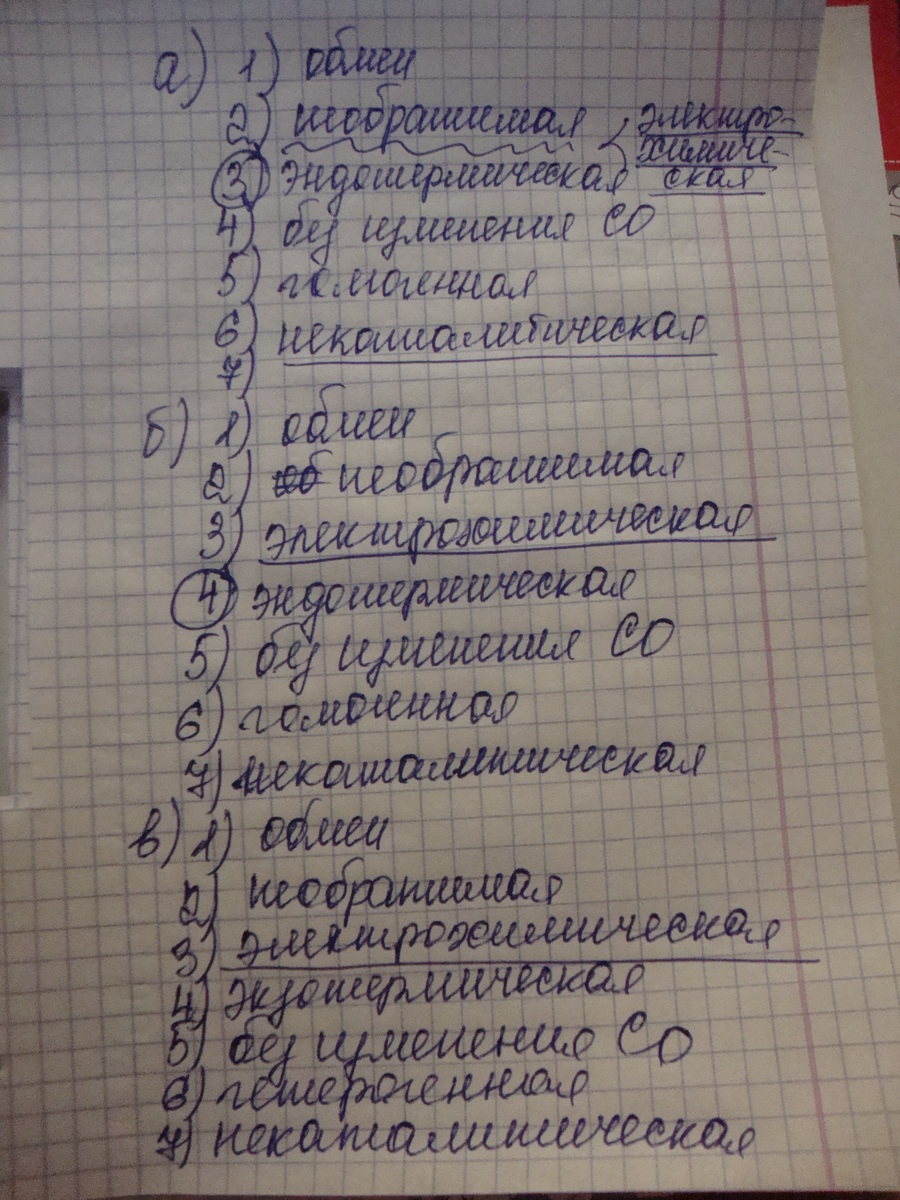 а) 1) обмен
2) необратимая электро-
химиче-
3) эндотермическая ская
4) без изменения СО
5) гомогенная
6) некаталитическая
7)
б) 1) обмен
2) об необратимая
3) электрохимическая
4) эндотермическая
5) без изменения СО
6) гомогенная
7) некаталитическая
в) 1) обмен
2) необратимая
3) электрохимическая
4) экзотермическая
5) без изменения СО
6) гетерогенная
7) некаталитическая